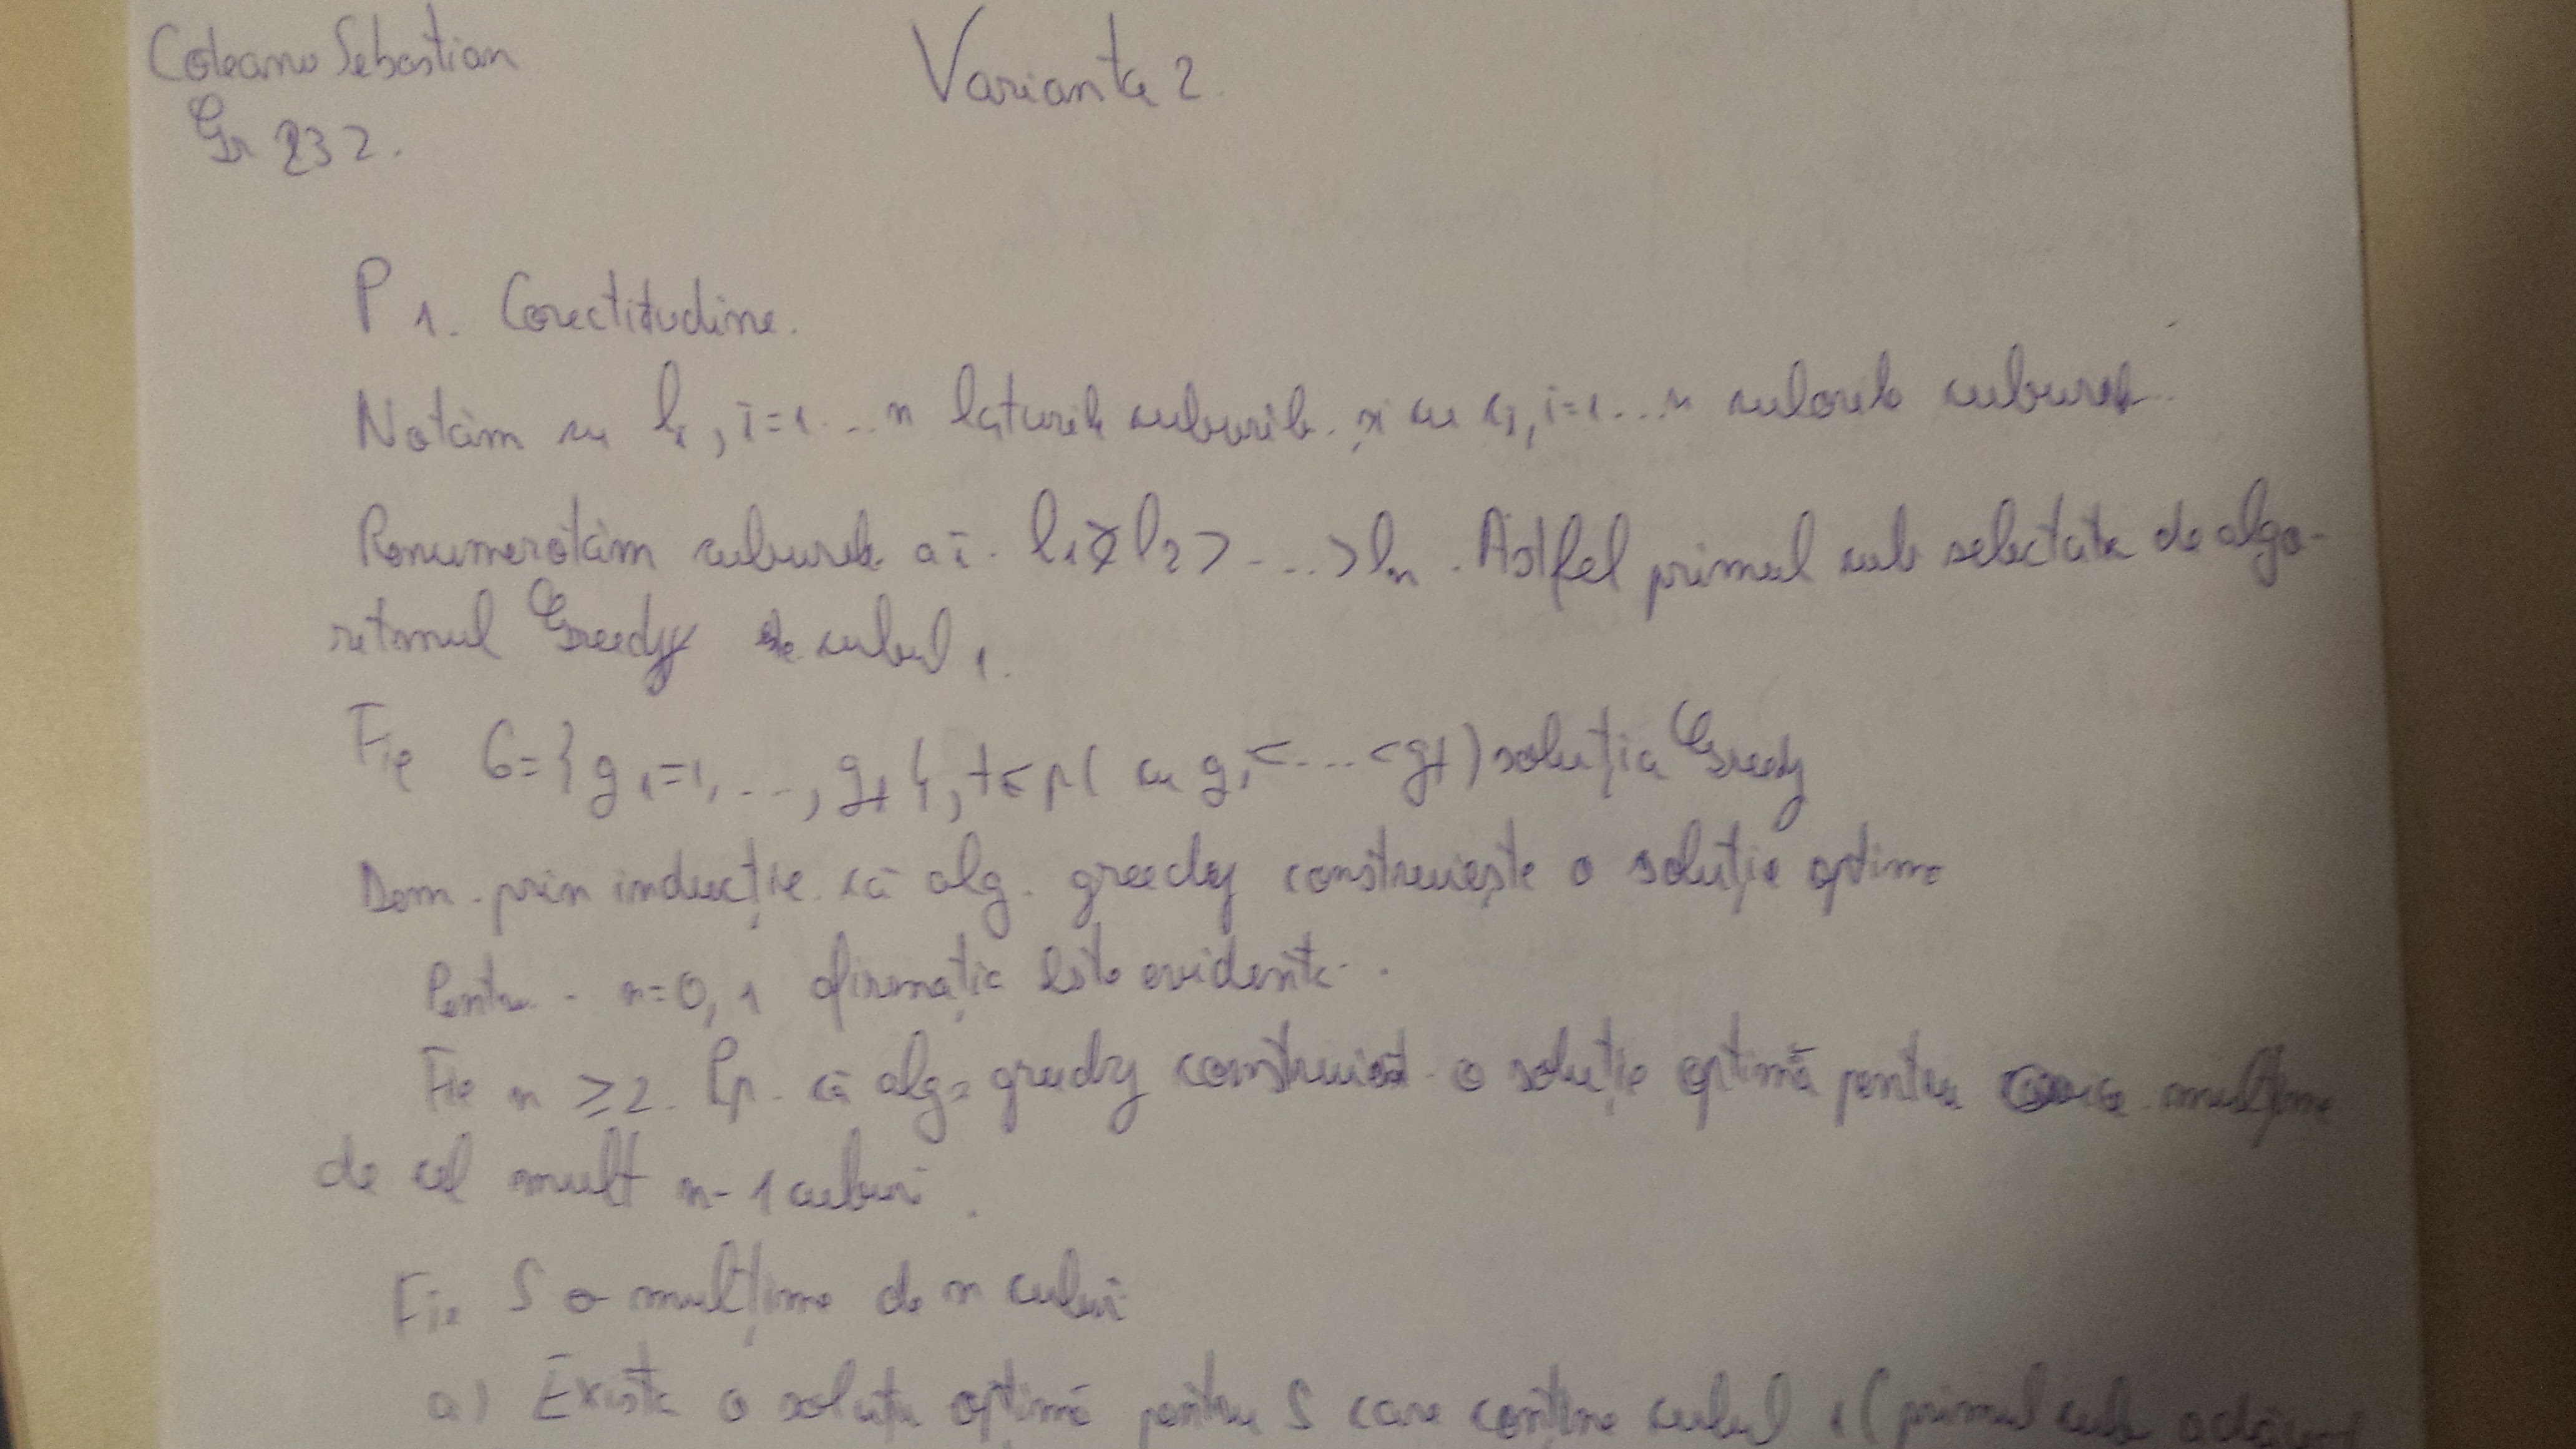 Coteanu Sebastian
Gr 232.
Varianta 2
P 1. Corectitudine.
Notăm cu li, i=1...n laturile cuburilor și cu ci, i=1...n culorile cuburilor.
Renumerotăm cuburile aî. l1 > l2 > ... > ln. Astfel primul cub selectate de algo-
ritmul Greedy e cubul 1.
Fie G = { g1=1, ..., gt }, t ≤ n ( cu g1 < ... < gt ) soluția Greedy
Dem. prin inducție că alg. greedy construiește o soluție optimă
Pentru n=0,1 afirmația este evidentă.
Fie n ≥ 2. Pp. că alg. greedy construiește o soluție optimă pentru orice mulțime
de cel mult n-1 cuburi.
Fie S o mulțime de n cuburi
a) Există o soluție optimă pentru S care conține cubul 1 (primul cub